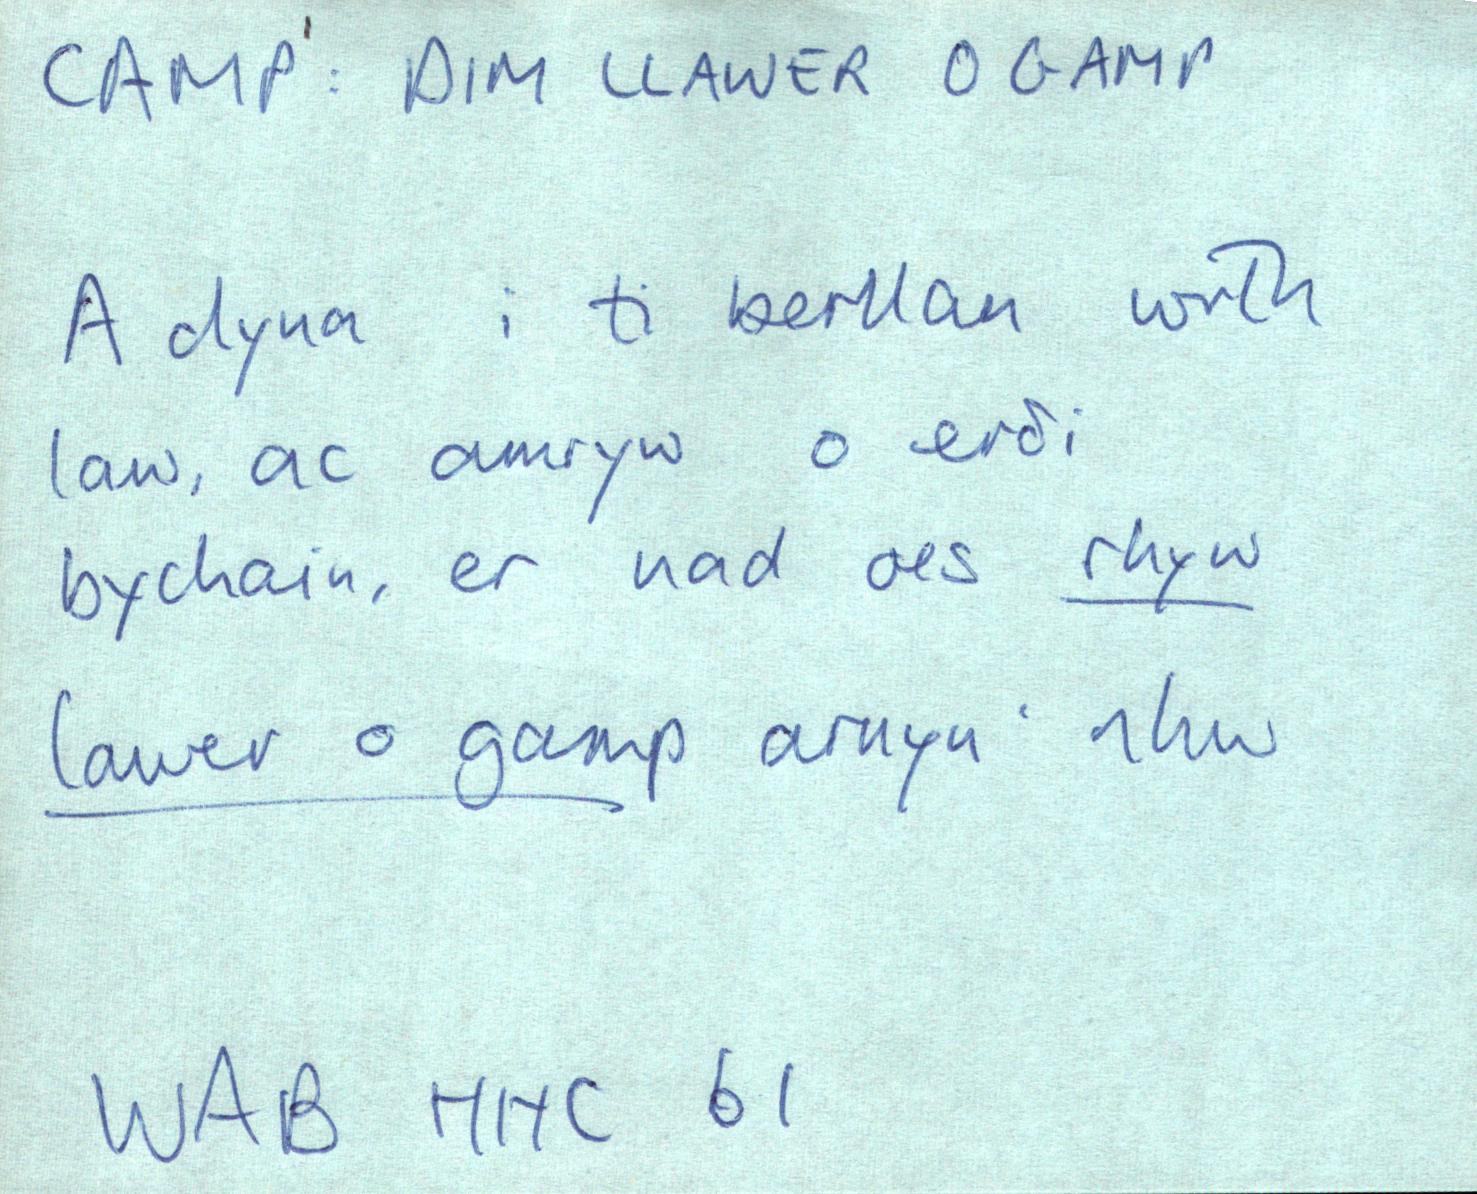 CAMP': DIM LLAWER O GAMP
A dyna i ti berllan wrth
law, ac amryw o erði
bychain, er nad oes rhyw
lawer o gamp arnyn' nhw
WAB HHC 61